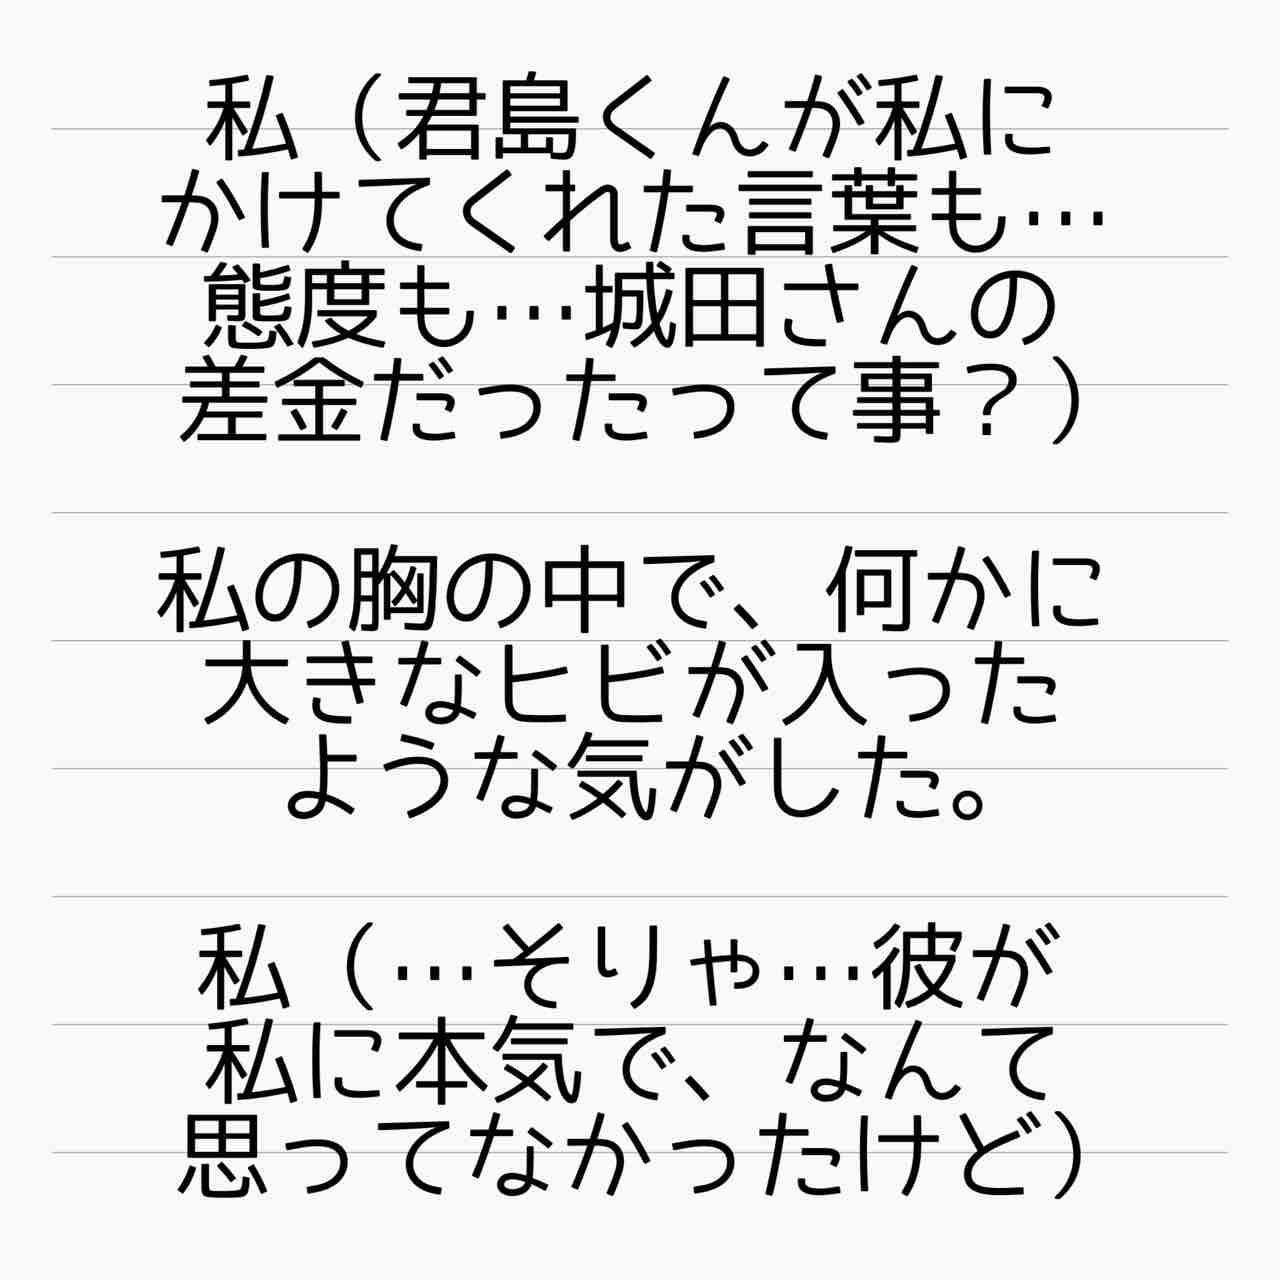 私（君島くんが私に
かけてくれた言葉も…
態度も…城田さんの
差金だったって事？）
私の胸の中で、何かに
大きなヒビが入った
ような気がした。
私（…そりゃ…彼が
私に本気で、なんて
思ってなかったけど）